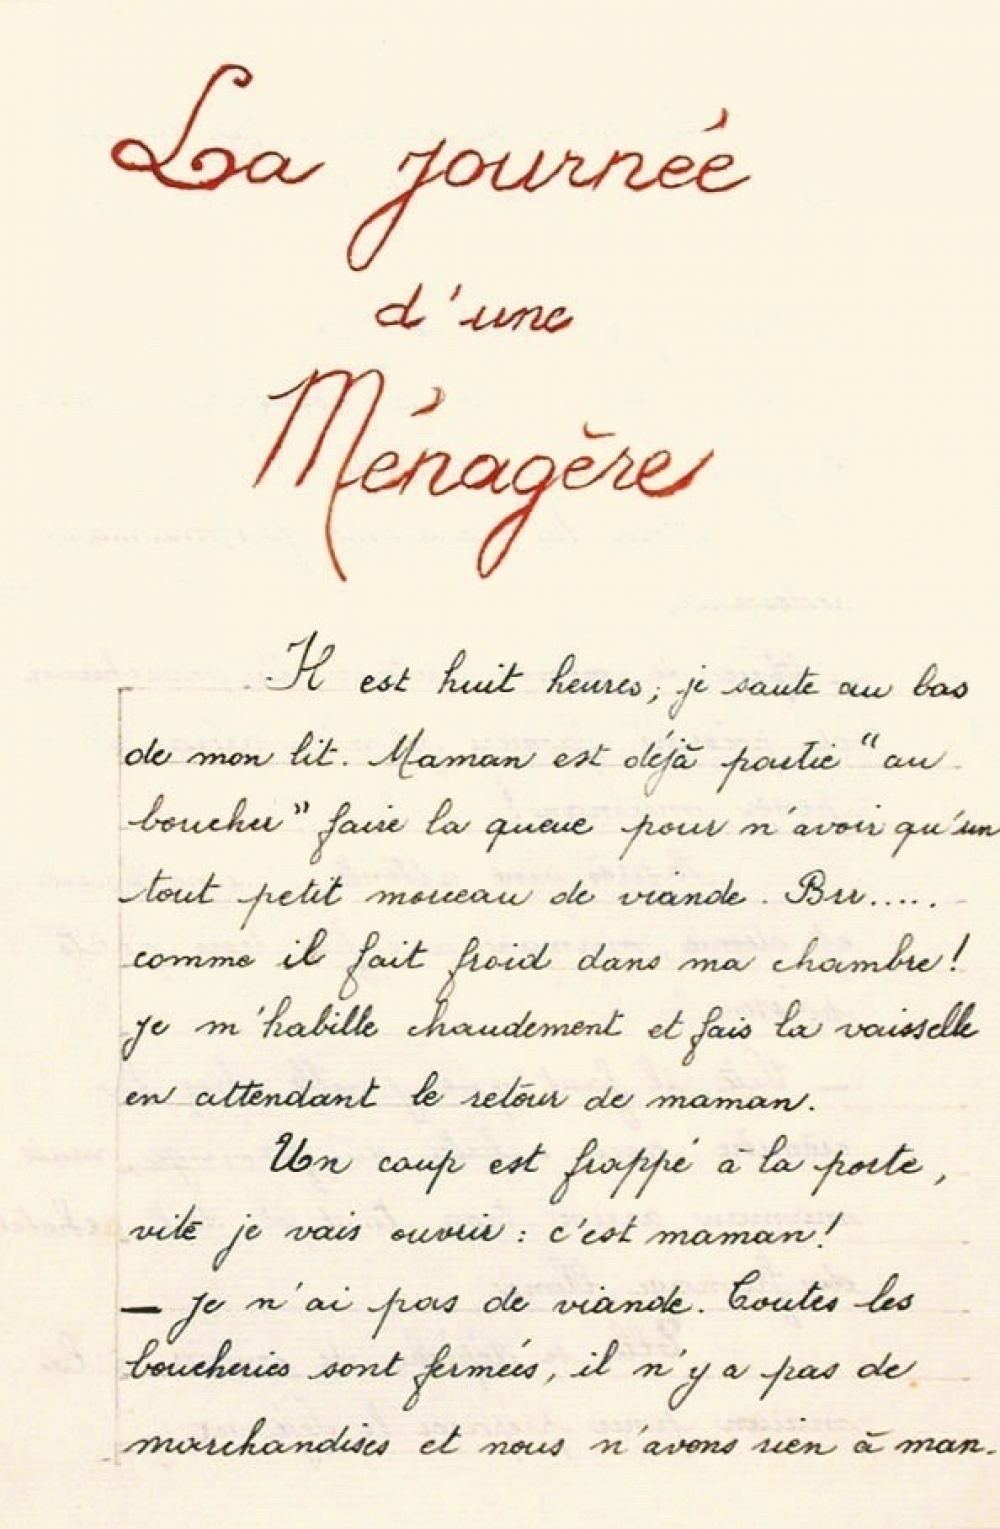 La journée
d'une
Ménagère
Il est huit heures, je saute au bas
de mon lit. Maman est déjà partie "au
boucher" faire la queue pour n'avoir qu'un
tout petit morceau de viande. Brr.....
comme il fait froid dans ma chambre!
Je m'habille chaudement et fais la vaisselle
en attendant le retour de maman.
Un coup est frappé à la porte,
vite je vais ouvrir : c'est maman!
— Je n'ai pas de viande. Toutes les
boucheries sont fermées, il n'y a pas de
marchandises et nous n'avons rien à man-